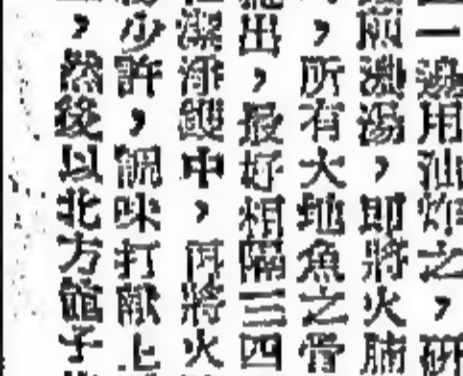 一邊用油炸之，研
煎濃湯，即將火腩
，所有大地魚之骨
出，最好相隔三四
潔淨鑊中，再將火
少許，調味打獻上
，然後以北方館子